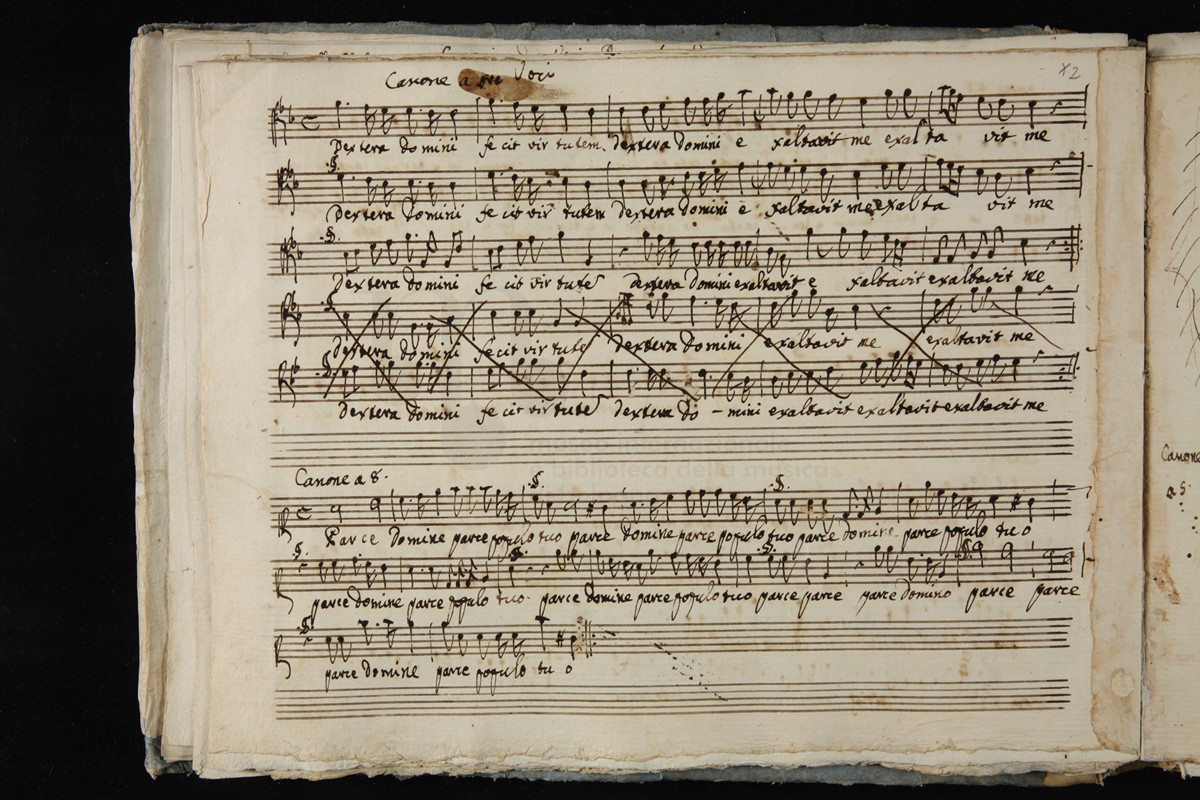 Canone a Voci
x2
Dextera domini fe cit vir tutem dextera domini e xaltavit me exal ta vit me
Dextera domini fe cit vir tutem dextera domini e xaltavit me exal ta vit me
Dextera domini fe cit vir tute dextera domini exaltavit e xaltavit exaltavit me
dextera domini fecit vir tute dextera domini exaltavit me exaltavit me
dextera domini fe cit vir tute dextera do - mini exaltavit exaltavit exaltavit me
museo internazionale
e biblioteca della musica
Canone a 8.
Parce Domine parce populo tuo parce domine parce populo tuo parce domine parce populo tu o
parce domine parce populo tuo parce domine parce populo tuo parce parce parce domino parce parce
parce domine parce populo tu o
Canone
a 5.